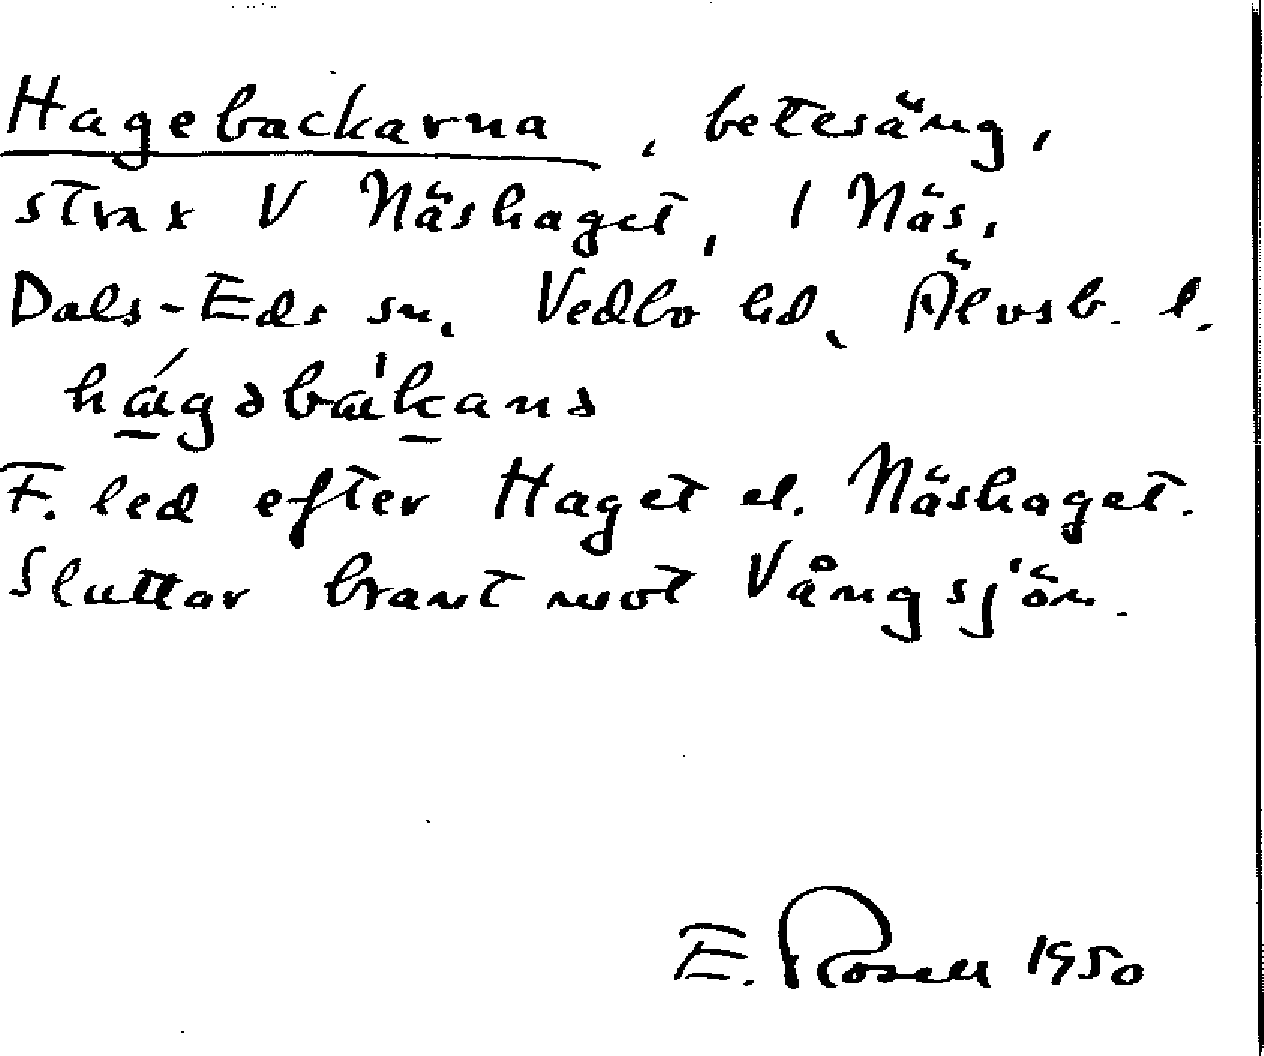 Hagebackarna, betesäng,
strax V Näshaget, 1 Näs,
Dals-Eds sn, Vedbo hd, Älvsb. l.
F. led efter Haget el. Näshaget.
Sluttar brant mot Vångsjön.
E. Rosell 1950